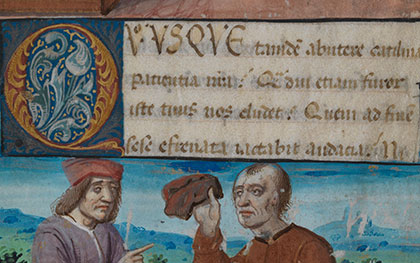 QVOVSQVE tandē abutere catilina
patientia nr̄a : Q̄ diu etiam furor
iste tuus nos eludet : Quem ad finē
sese efrenata iactabit audacia : Ne